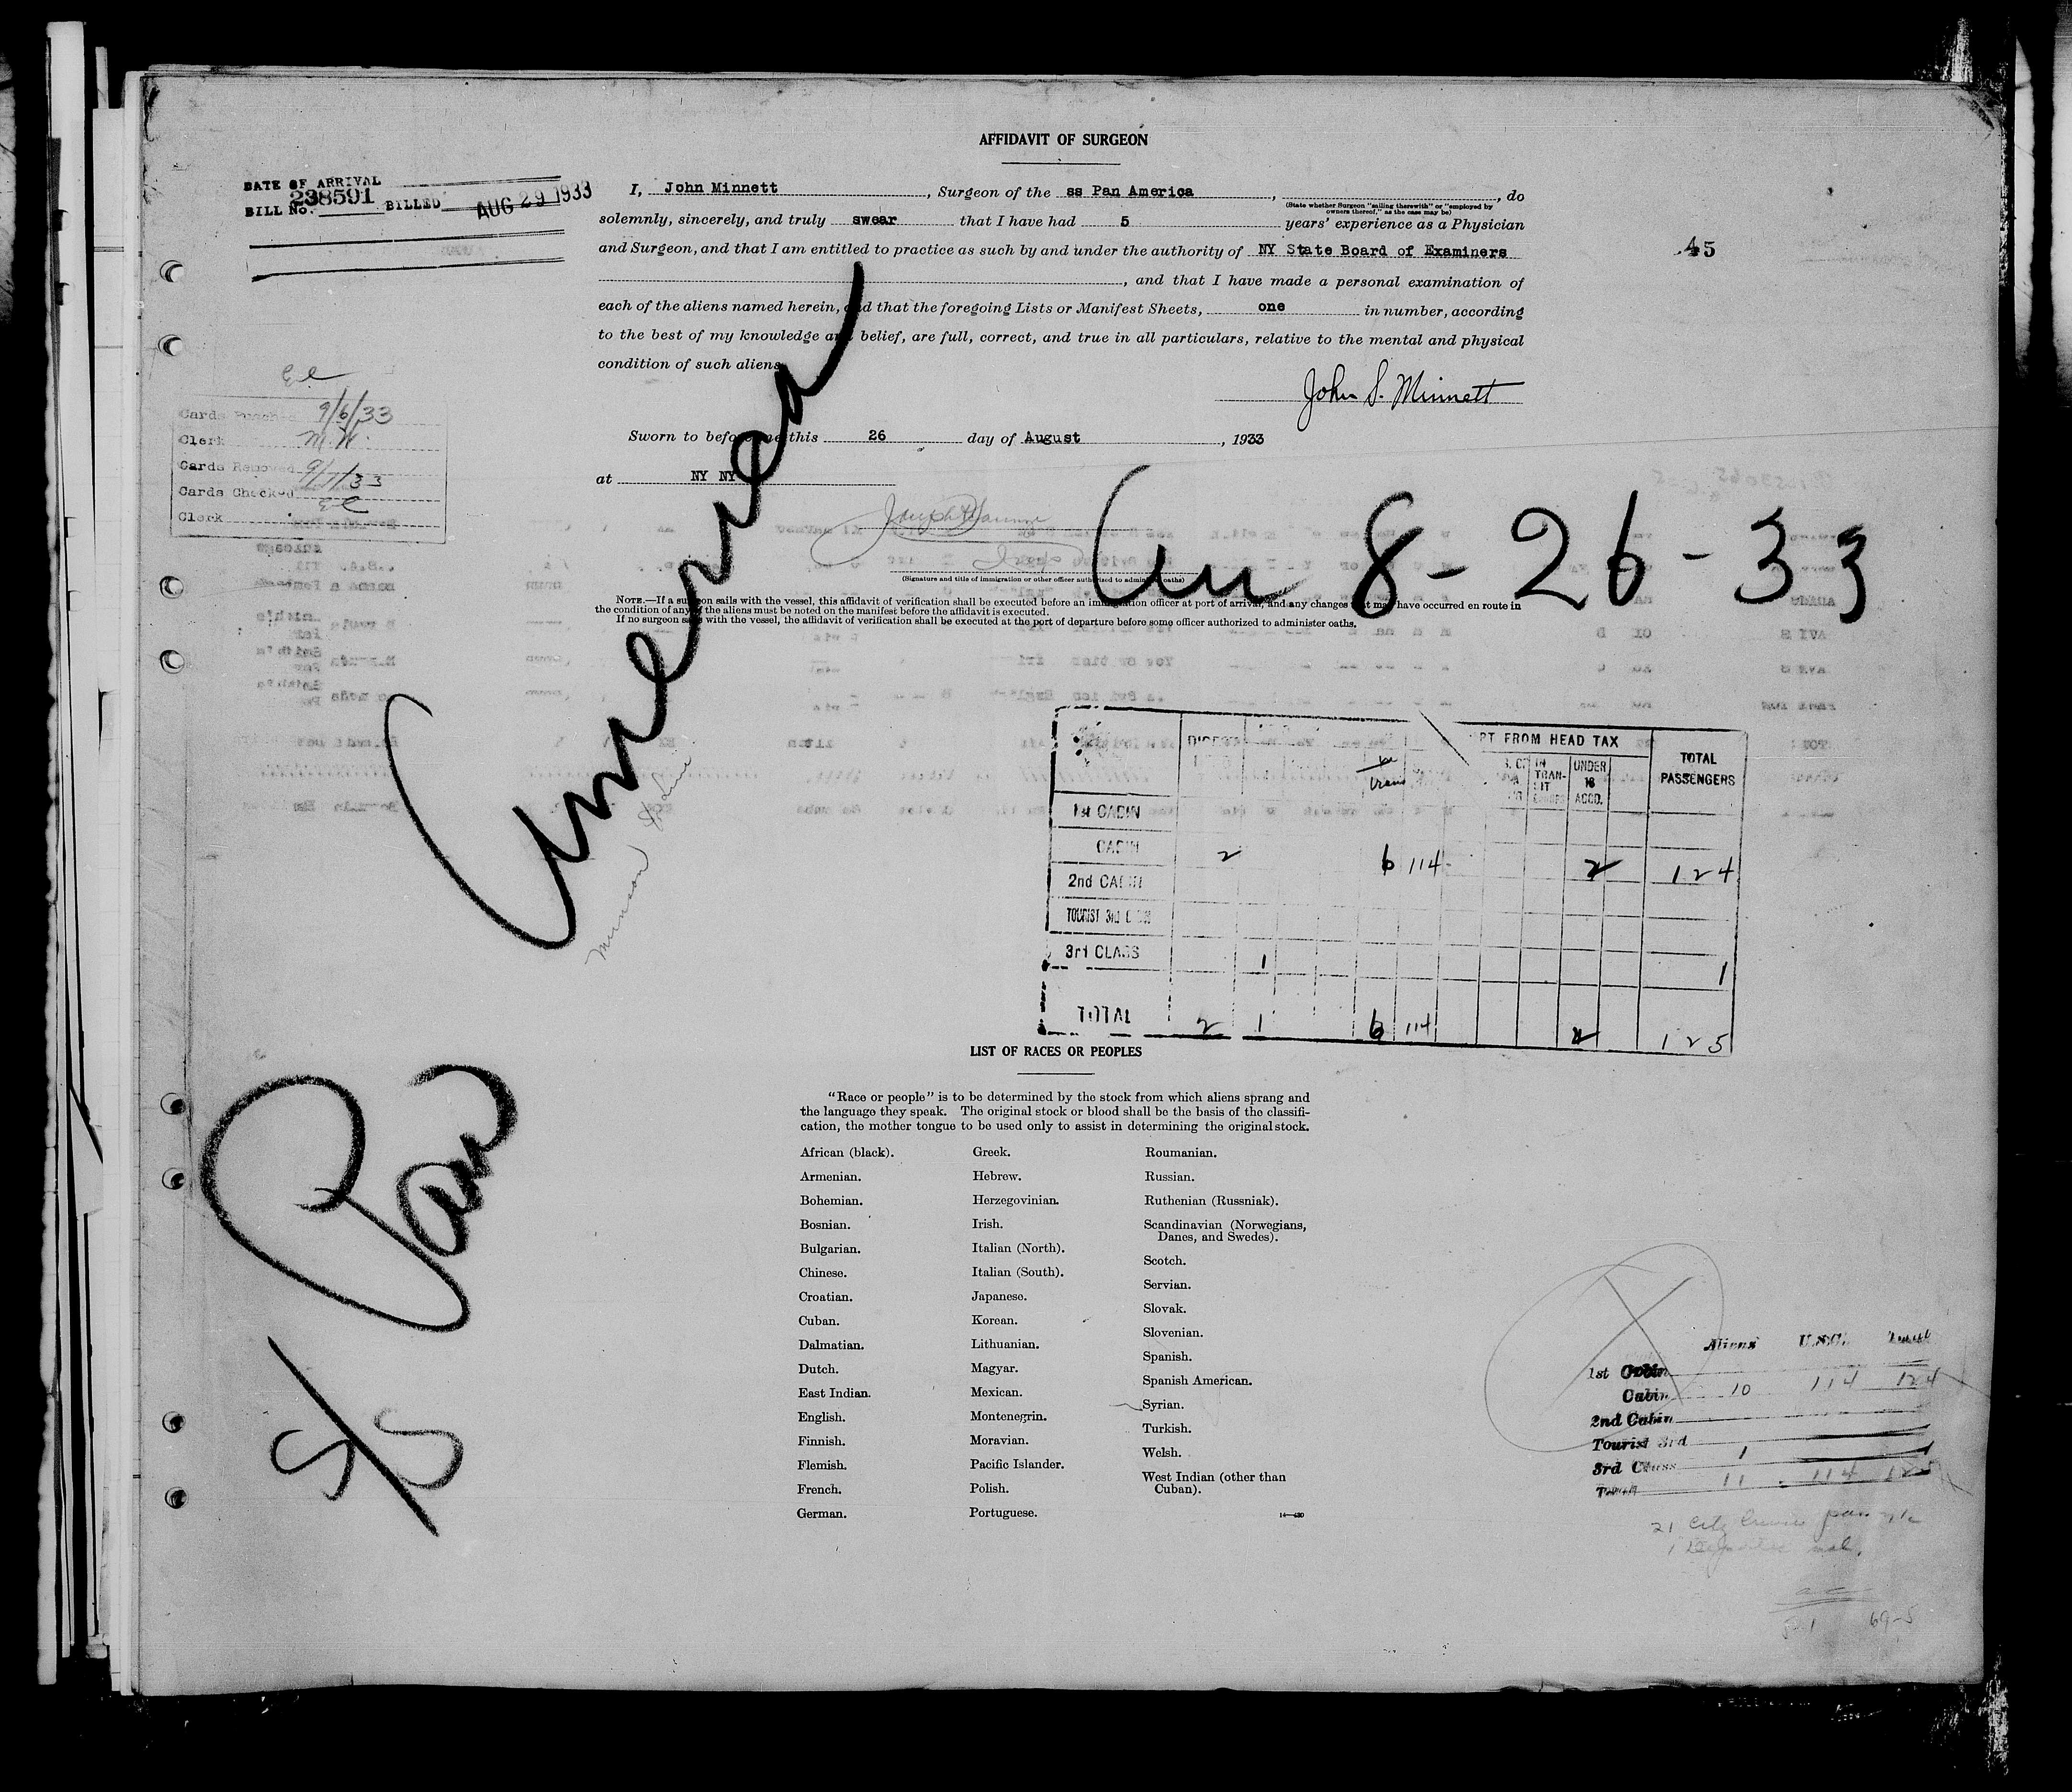 AFFIDAVIT OF SURGEON
DATE OF ARRIVAL
BILL No. 238591 BILLED AUG 29 1933
I, John Minnett, Surgeon of the ss Pan America, , do
(State whether Surgeon "sailing therewith" or "employed by owners thereof," as the case may be)
solemnly, sincerely, and truly swear that I have had 5 years' experience as a Physician
and Surgeon, and that I am entitled to practice as such by and under the authority of NY State Board of Examiners
45
, and that I have made a personal examination of
each of the aliens named herein, and that the foregoing Lists or Manifest Sheets, one in number, according
to the best of my knowledge and belief, are full, correct, and true in all particulars, relative to the mental and physical
condition of such aliens
John S. Minnett
Sworn to before me this 26 day of August, 1933
at NY NY
Cards Punched 9/6/33
Clerk M.W.
Cards Removed 9/7/33
Cards Checked
Clerk
(Signature and title of immigration or other officer authorized to administer oaths)
8-26-33
NOTE.—If a surgeon sails with the vessel, this affidavit of verification shall be executed before an immigration officer at port of arrival, and any changes that may have occurred en route in
the condition of any of the aliens must be noted on the manifest before the affidavit is executed.
If no surgeon sails with the vessel, the affidavit of verification shall be executed at the port of departure before some officer authorized to administer oaths.
S/S Pan America
Munson Line
PT FROM HEAD TAX
IN TRANSIT
UNDER 16 ACCD.
TOTAL PASSENGERS
1st CABIN
CABIN 2 6 114 2 124
2nd CABIN
TOURIST 3rd
3rd CLASS 1 1
TOTAL 2 1 6 114 2 125
LIST OF RACES OR PEOPLES
"Race or people" is to be determined by the stock from which aliens sprang and
the language they speak. The original stock or blood shall be the basis of the classifi-
cation, the mother tongue to be used only to assist in determining the original stock.
African (black).
Armenian.
Bohemian.
Bosnian.
Bulgarian.
Chinese.
Croatian.
Cuban.
Dalmatian.
Dutch.
East Indian.
English.
Finnish.
Flemish.
French.
German.
Greek.
Hebrew.
Herzegovinian.
Irish.
Italian (North).
Italian (South).
Japanese.
Korean.
Lithuanian.
Magyar.
Mexican.
Montenegrin.
Moravian.
Pacific Islander.
Polish.
Portuguese.
Roumanian.
Russian.
Ruthenian (Russniak).
Scandinavian (Norwegians,
Danes, and Swedes).
Scotch.
Servian.
Slovak.
Slovenian.
Spanish.
Spanish American.
Syrian.
Turkish.
Welsh.
West Indian (other than
Cuban).
Aliens U.S.C. Total
1st Cabin
Cabin 10 114 124
2nd Cabin
Tourist 3rd
3rd Class 1 1
Total 11 114 125